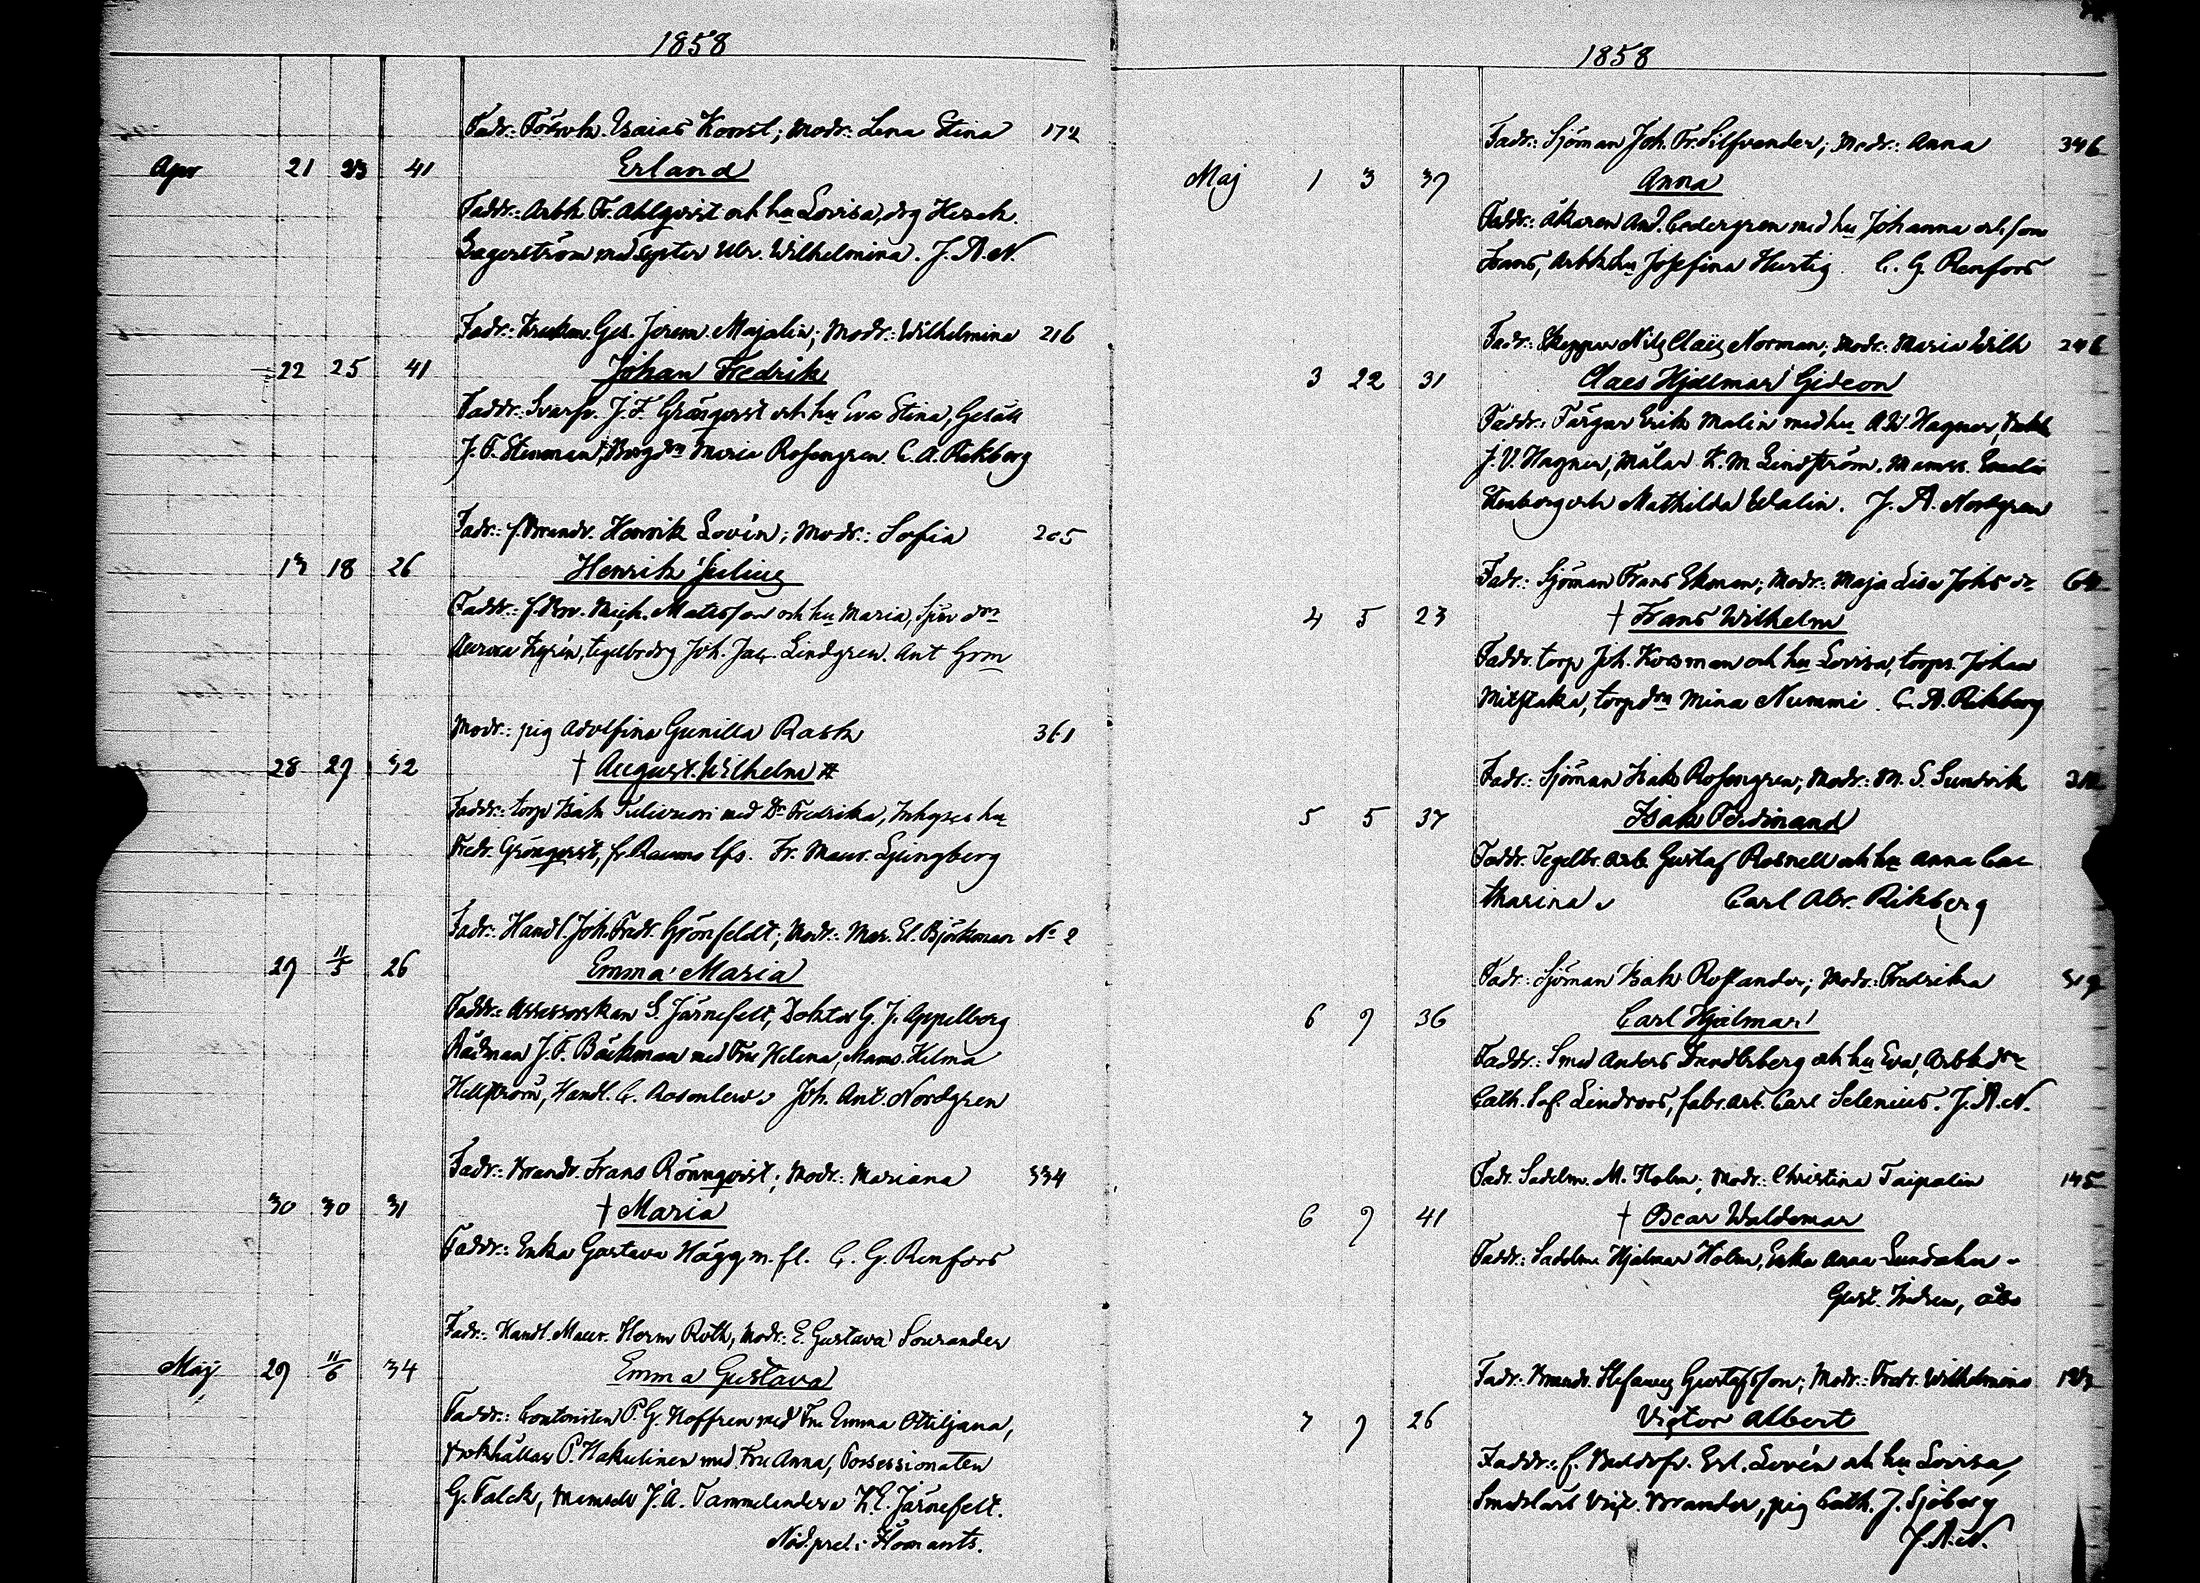 1858
Fadr.: Isaias Konst; Modr.: Lena Stina 172
Apr 21 23 41 Erland
Faddr.: Arbk. Fr. Ahlqvist och hu Lovisa, drg
Lagerström med syster Ulr. Wilhelmina. J. A. N.
Fadr.: Ges. Jerem. Majalin; Modr.: Wilhelmina 216
22 25 41 Johan Fredrik
Faddr.: Svarfv. J. F. Gräsqvist och hu Eva Stina, Gesäll
J. F. Stenman, Maria Rosengren. C. A. Rikberg
Fadr.: f. Brandv. Henrik Lovén; Modr.: Sofia 205
18 26 Henrik Julius
Faddr.: Mich. Matsson och hu Maria,
Aurora tegelbr drg Joh. Jac. Lindgren. Ant Grm
Modr.: pig Adolfina Gunilla Rask 361
28 29 32 † August Wilhelm #
Faddr.: torp Isak med Dr Fredrika, Inhyses hu
Fredr. Grönqvist, fr Raumo lfs. Fr. Maur. Ljungberg
Fadr.: Handl. Joh. Fredr. Grönfeldt; Modr.: Mar. El. Björkman No 2
29 11/5 26 Emma Maria
Faddr.: Assessorskan S. Järnefelt, Doktor G. J. Appelberg
Rådman J. F. Bäckman med Fru Helena, Mams. Hilma
Hellström, Handl. C. Rosenlew. Joh. Ant. Nordgren
Fadr.: Brandv. Frans Rönnqvist; Modr.: Mariana 334
30 30 31 † Maria
Faddr.: Enka Gustava Hägg m. fl. C. G. Renfors
Fadr.: Handl. Maur. Herm Roth, Modr.: E. Gustava Sourander
Maj 29 11/6 34 Emma Gustava
Faddr.: Contoristen P. G. Hoffren med Fru Emma Ottiljana,
Bokhållar P. Hakulinen med Fru Anna, Possessionaten
G. Falck, Mamsell J. A. Tammelander o Järnefelt.
Nöd.pred. i Ilomants.
1858
Fadr.: Sjöman Joh. Fr. Silfvander; Modr.: Anna 346
Maj 1 3 37 Anna
Faddr.: Åkaren And. Cedergren med hu Johanna och son
Frans, Arbk hu Josefina Hurtig. C. G. Renfors
Fadr.: Skeppar Nils Claes Norman; Modr.: Maria Wilh 246
3 22 31 Claes Hjalmar Gideon
Faddr.: Färgar Erik Malin med hu A. W. Hagner,
J. V. Hagner, Målar K. M. Lindström, Mamss. Emelie
Stenberg och Mathilda Walin. J. A. Nordgren
Fadr.: Sjöman Frans Ekman; Modr.: Maja Lisa Johs dr
4 5 23 † Frans Wilhelm
Faddr. torp Joh. Korsman och hu Lovisa, torps. Johan
torp dr Mina Nummi. C. A. Rikberg
Fadr.: Sjöman Isak Rosengren; Modr.: M. S. Sundvik
5 5 37 Isak Ferdinand
Faddr. Tegelbr. arb. Gustaf Rosnell och hu Anna Ca-
tharina. Carl Abr. Rikberg
Fadr.: Sjöman Isak Rosslander; Modr.: Fredrika 519
6 9 36 Carl Hjalmar
Faddr.: Smed Anders Sundberg och hu Eva, Arbk dr
Cath. Sof. Lindroos, fabr. arb. Carl Selenius. J. A. N.
Fadr. Sadelm. M. Holm; Modr.: Christina Taipalin 145
6 9 41 † Oscar Waldemar
Faddr.: Sadelm. Hjalmar Holm, Enka Anna Lundahn.
Gust. Indren, Åbo
Fadr. Brandv. Stefanus Gustafsson; Modr.: Fredr. Wilhelmina
7 9 26 Victor Albert
Faddr.: f. Erl. Lovén och hu Lovisa,
Smedslärl Vict. pig Cath. J. Sjöberg
J. A. N.